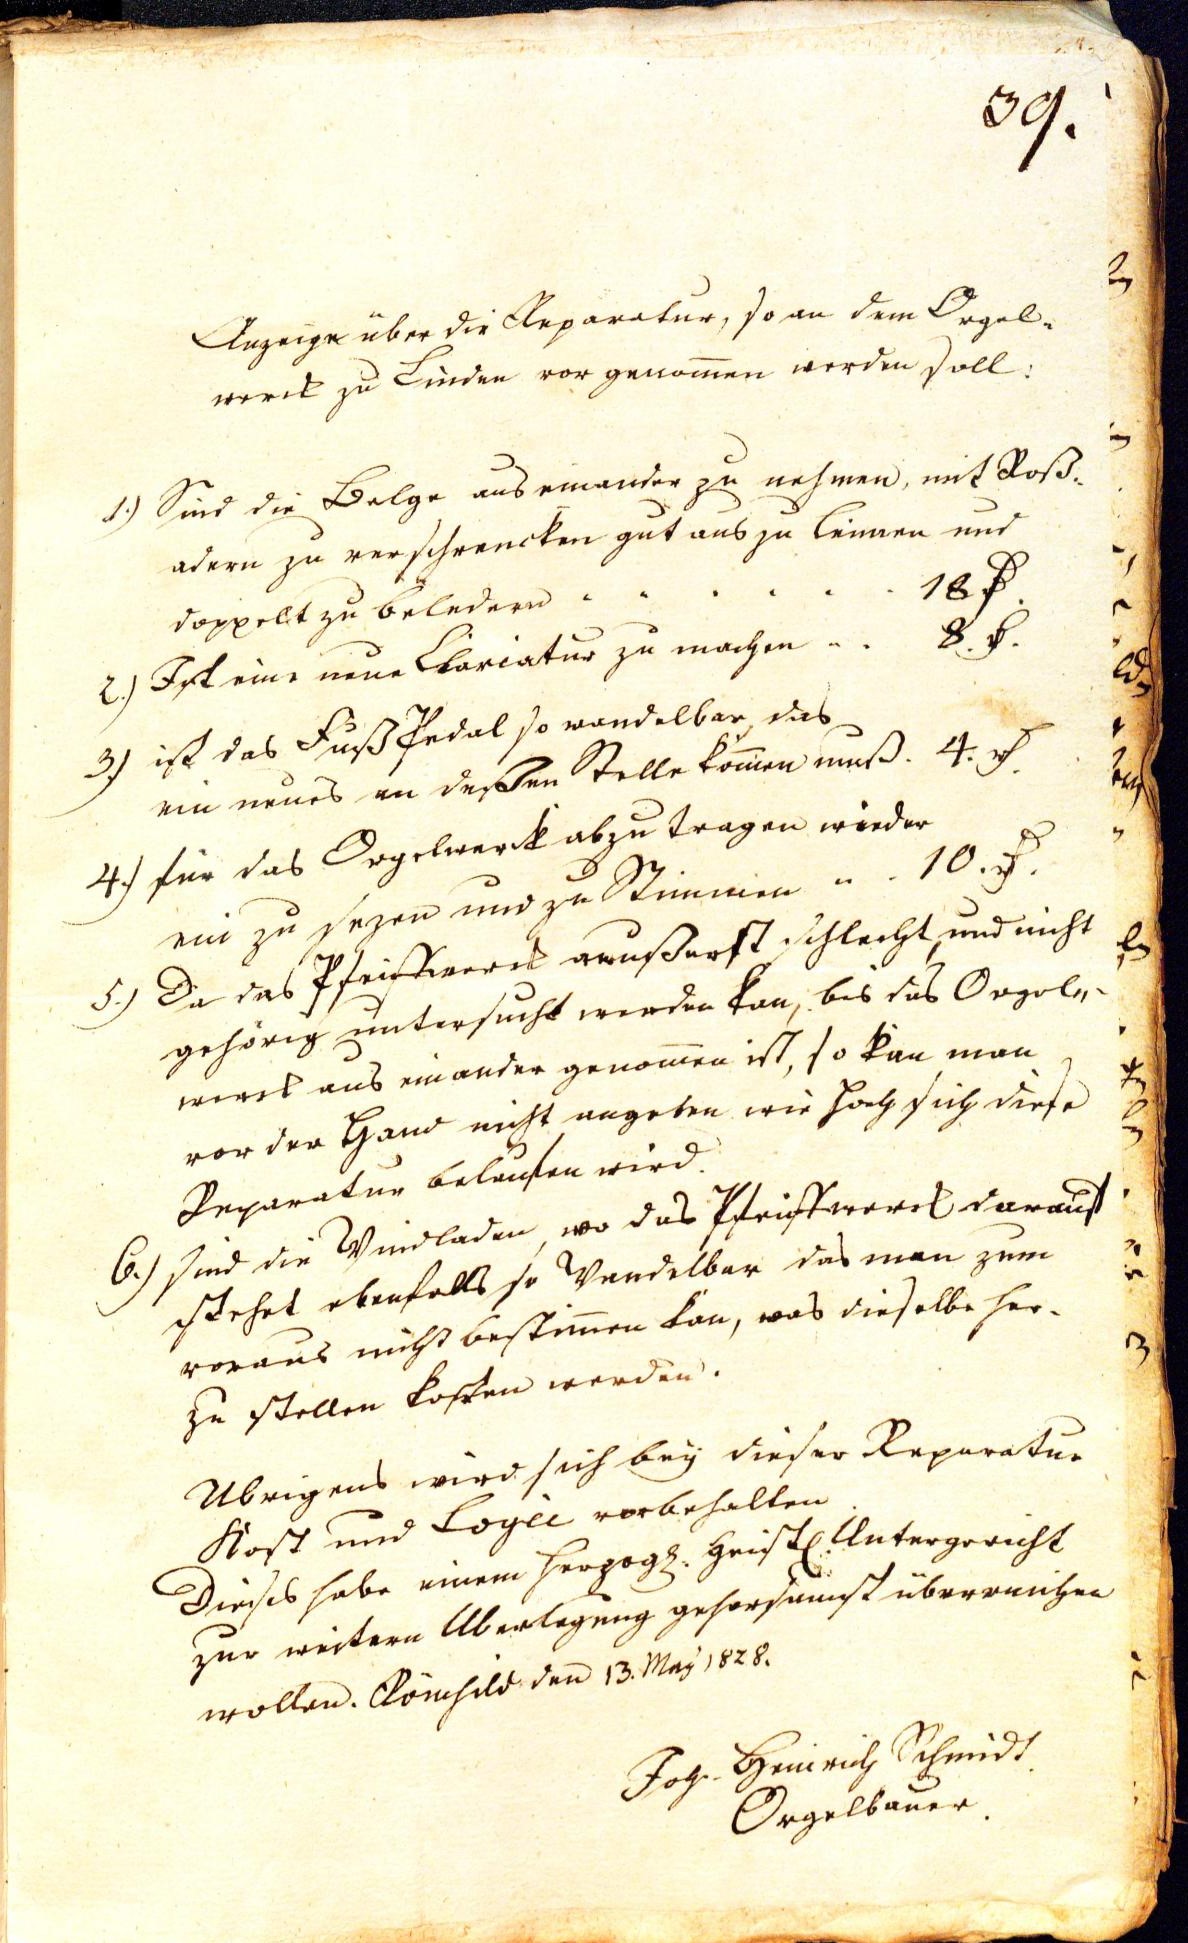 39.
Anzeige über die Reparatur, so an dem Orgel-
werck zu Linden vor genom̄en werden soll:
1.) Sind die Belge aus einander zu nehmen, mit Roß-
adern zu verschrencken gut aus zu leimen und
doppelt zu beledern - - - - - - 18 f.
2.) Ist eine neue Claviatur zu machen - . 8. f.
3.) ist das Fuß Pedal so wandelbar, das
ein neues an deßen Stelle kom̄en muß. 4. f.
4.) für das Orgelwerck abzu tragen wieder
ein zu sezen und zu Stimmen - . 10. f.
5.) Da das Pfeiffwerck aeußerst schlecht, und nicht
gehörig untersucht werden kan, bis das Orgel-
werck aus einander genom̄en ist, so kan man
vor der Hand nicht angeben wie hoch sich diese
Reparatur belaufen wird.
6.) sind die Windladen, wo das Pfeiffwerck darauf
stehet ebenfalls so Wandelbar das man zum
voraus nicht bestim̄en kan, was dieselbe her-
zu stellen kosten werden.
Ubrigens wird sich bey dieser Reparatur
Kost und Logie vorbehalten.
Dieses habe einem Herzogl. Geistl. Untergericht
zur weitern Uberlegung gehorsamst überreichen
wollen. Römhild den 13. May 1828.
Joh. Heinrich Schmidt
Orgelbauer.